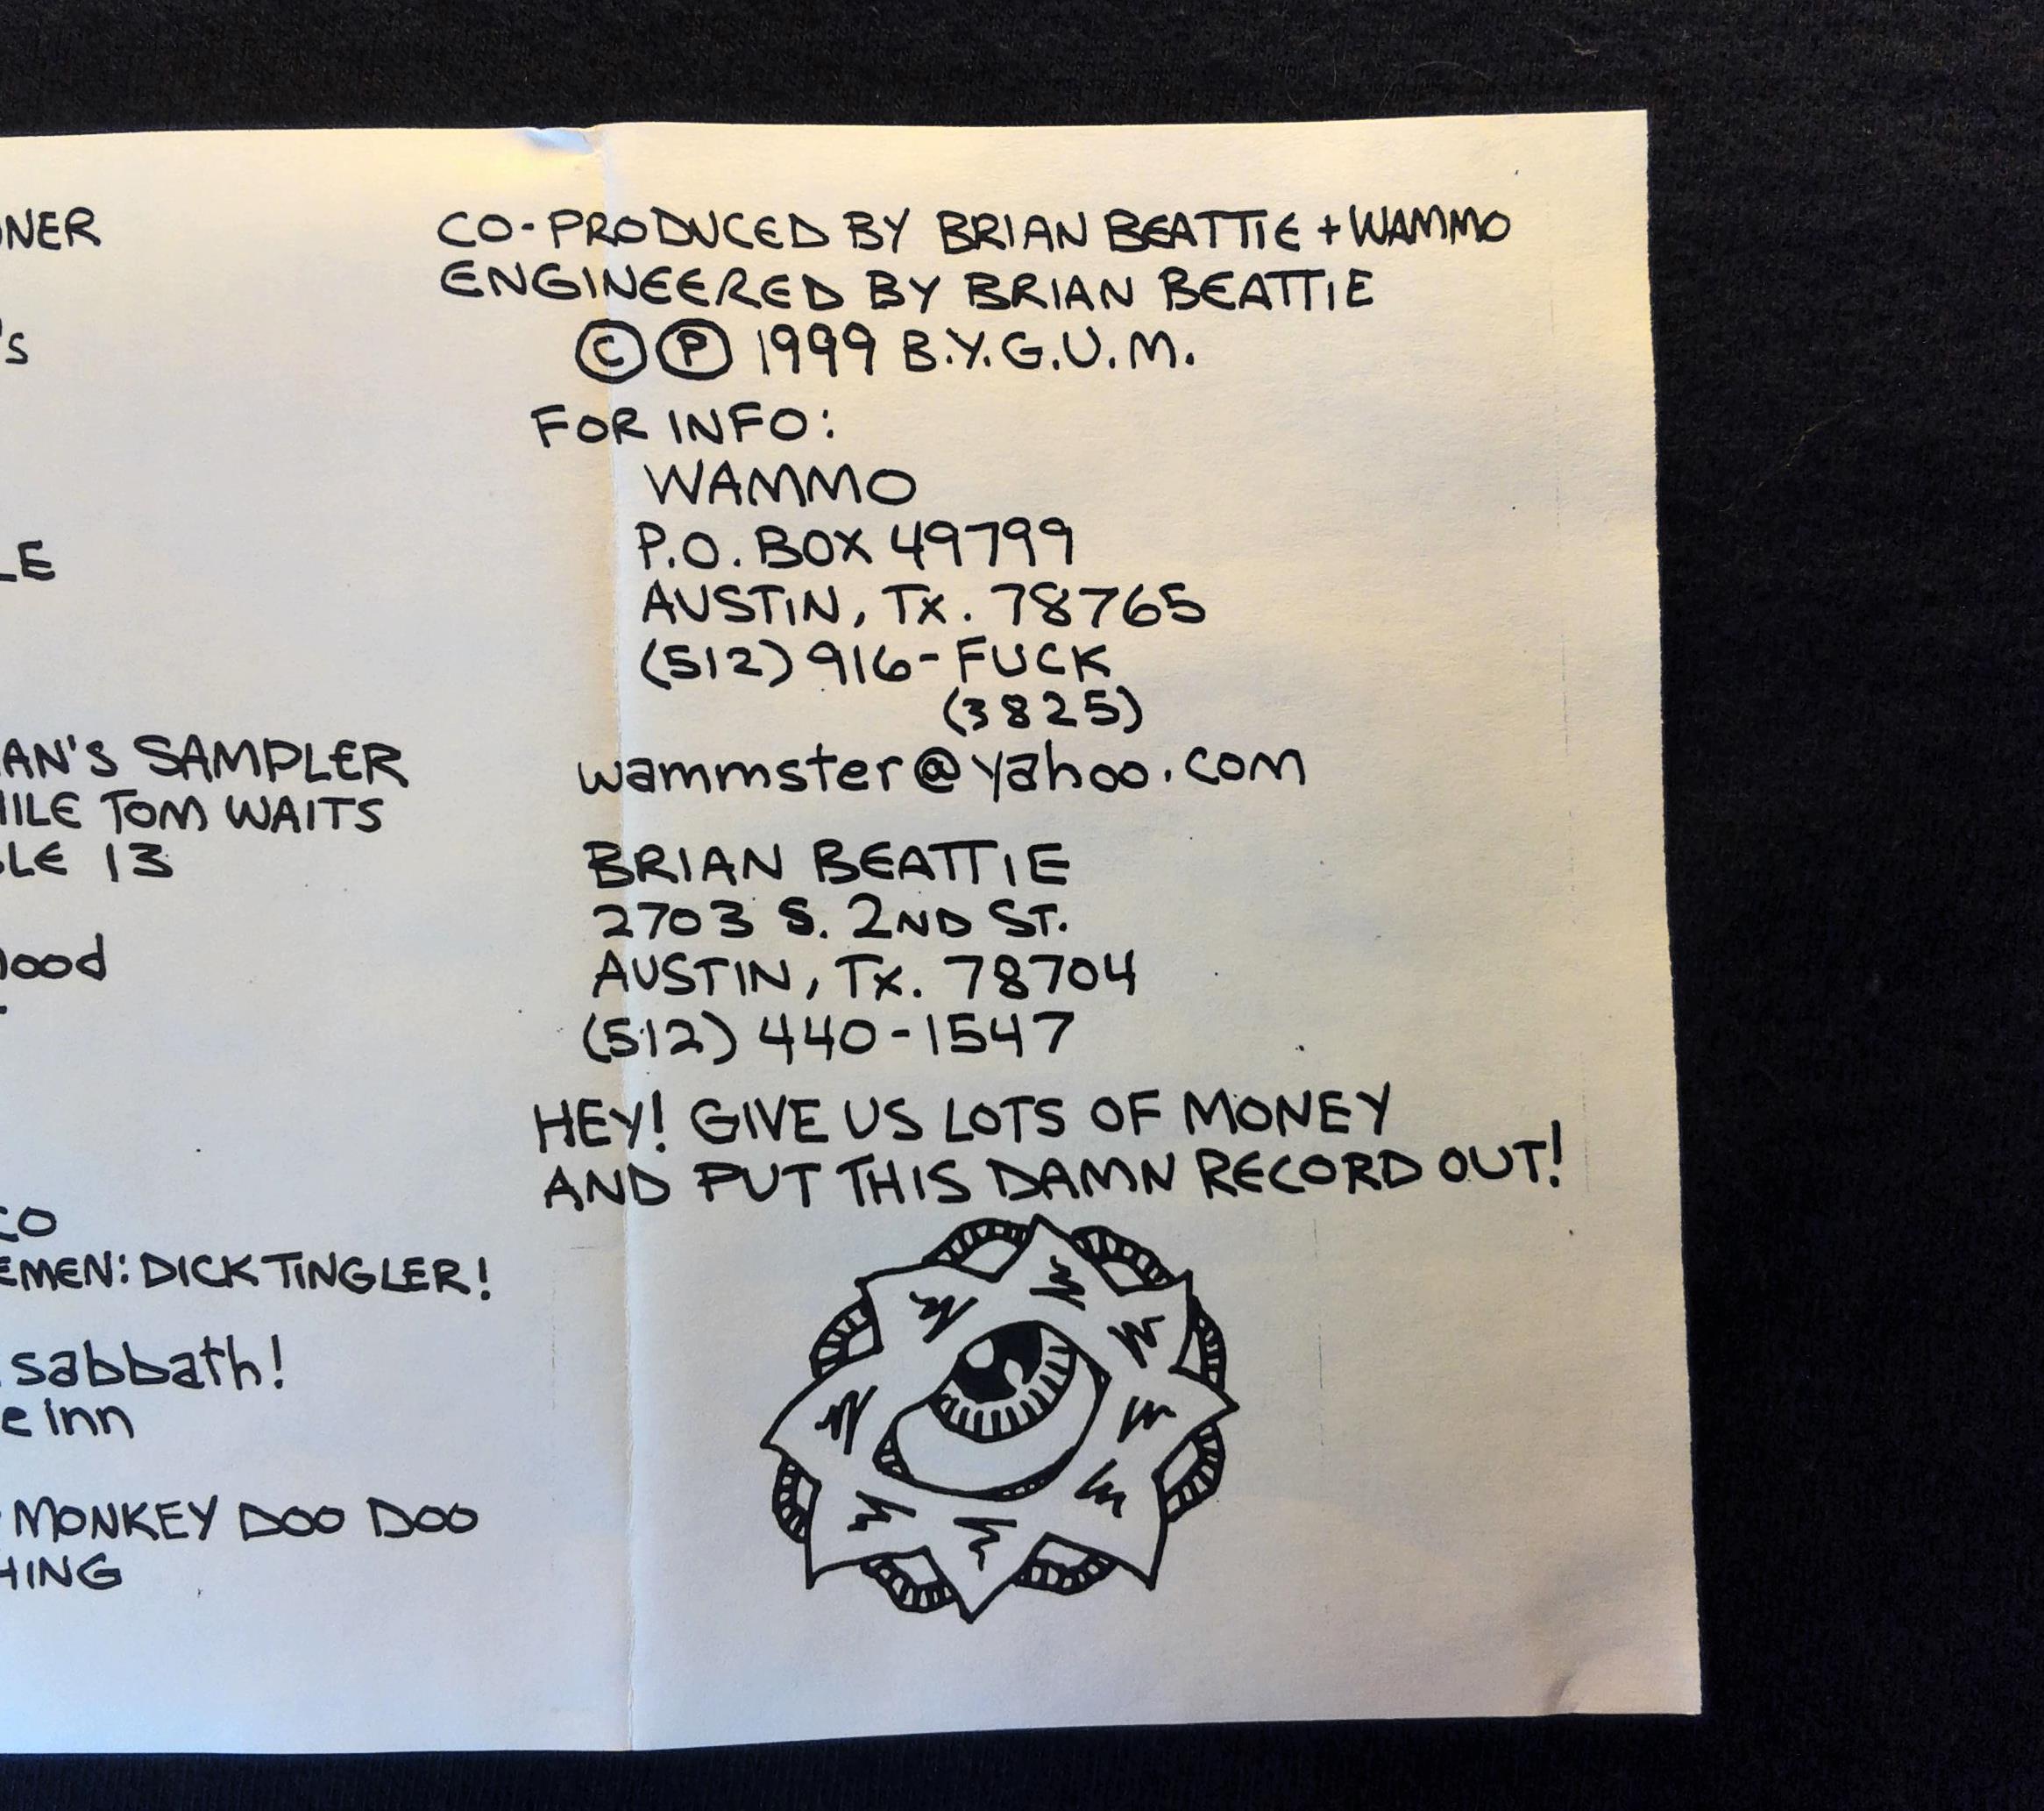 NER
's
LE
AN'S SAMPLER
HILE TOM WAITS
BLE 13
hood
CO
EMEN: DICK TINGLER!
sabbath!
e Inn
MONKEY DOO DOO
HING
CO-PRODUCED BY BRIAN BEATTIE + WAMMO
ENGINEERED BY BRIAN BEATTIE
© ℗ 1999 B.Y.G.U.M.
FOR INFO:
WAMMO
P.O. BOX 49799
AUSTIN, TX. 78765
(512) 916-FUCK
(3825)
wammster@yahoo.com
BRIAN BEATTIE
2703 S. 2ND ST.
AUSTIN, TX. 78704
(512) 440-1547
HEY! GIVE US LOTS OF MONEY
AND PUT THIS DAMN RECORD OUT!